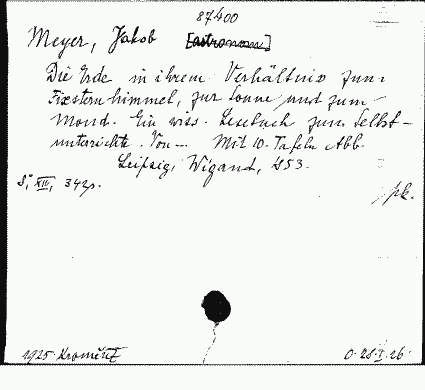 87400
Meyer, Jakob [astronom]
Die Erde in ihrem Verhältnis zum
Fixsternhimmel, zur Sonne und zum
Mond. Ein wiss. Lesebuch zum Selbst-
unterrichte. Von — Mit 10. Tafeln Abb.
Leipzig, Wigand, 853.
8°, XII, 342 p.
pk.
1925 Kroměříž
O-28-I.26.